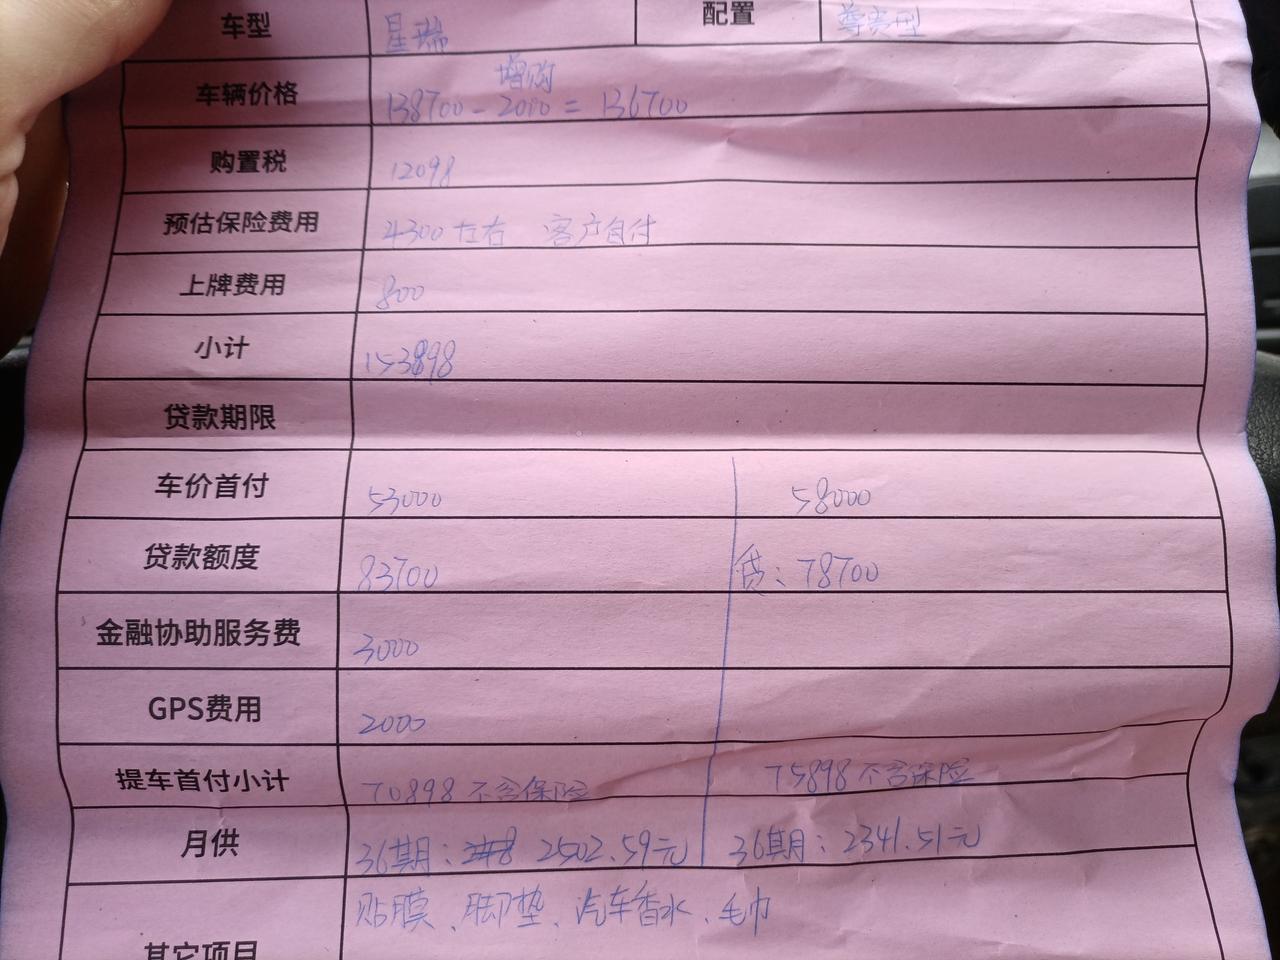 车型 星瑞 配置 尊贵型
增购
车辆价格 138700-2000=136700
购置税 12098
预估保险费用 4300左右 客户自付
上牌费用 800
小计 153898
贷款期限
车价首付 53000 58000
贷款额度 83700 贷：78700
金融协助服务费 3000
GPS费用 2000
提车首付小计 70898不含保险 75898不含保险
月供 36期： 2502.59元 36期：2341.51元
贴膜、脚垫、汽车香水、毛巾
其它项目